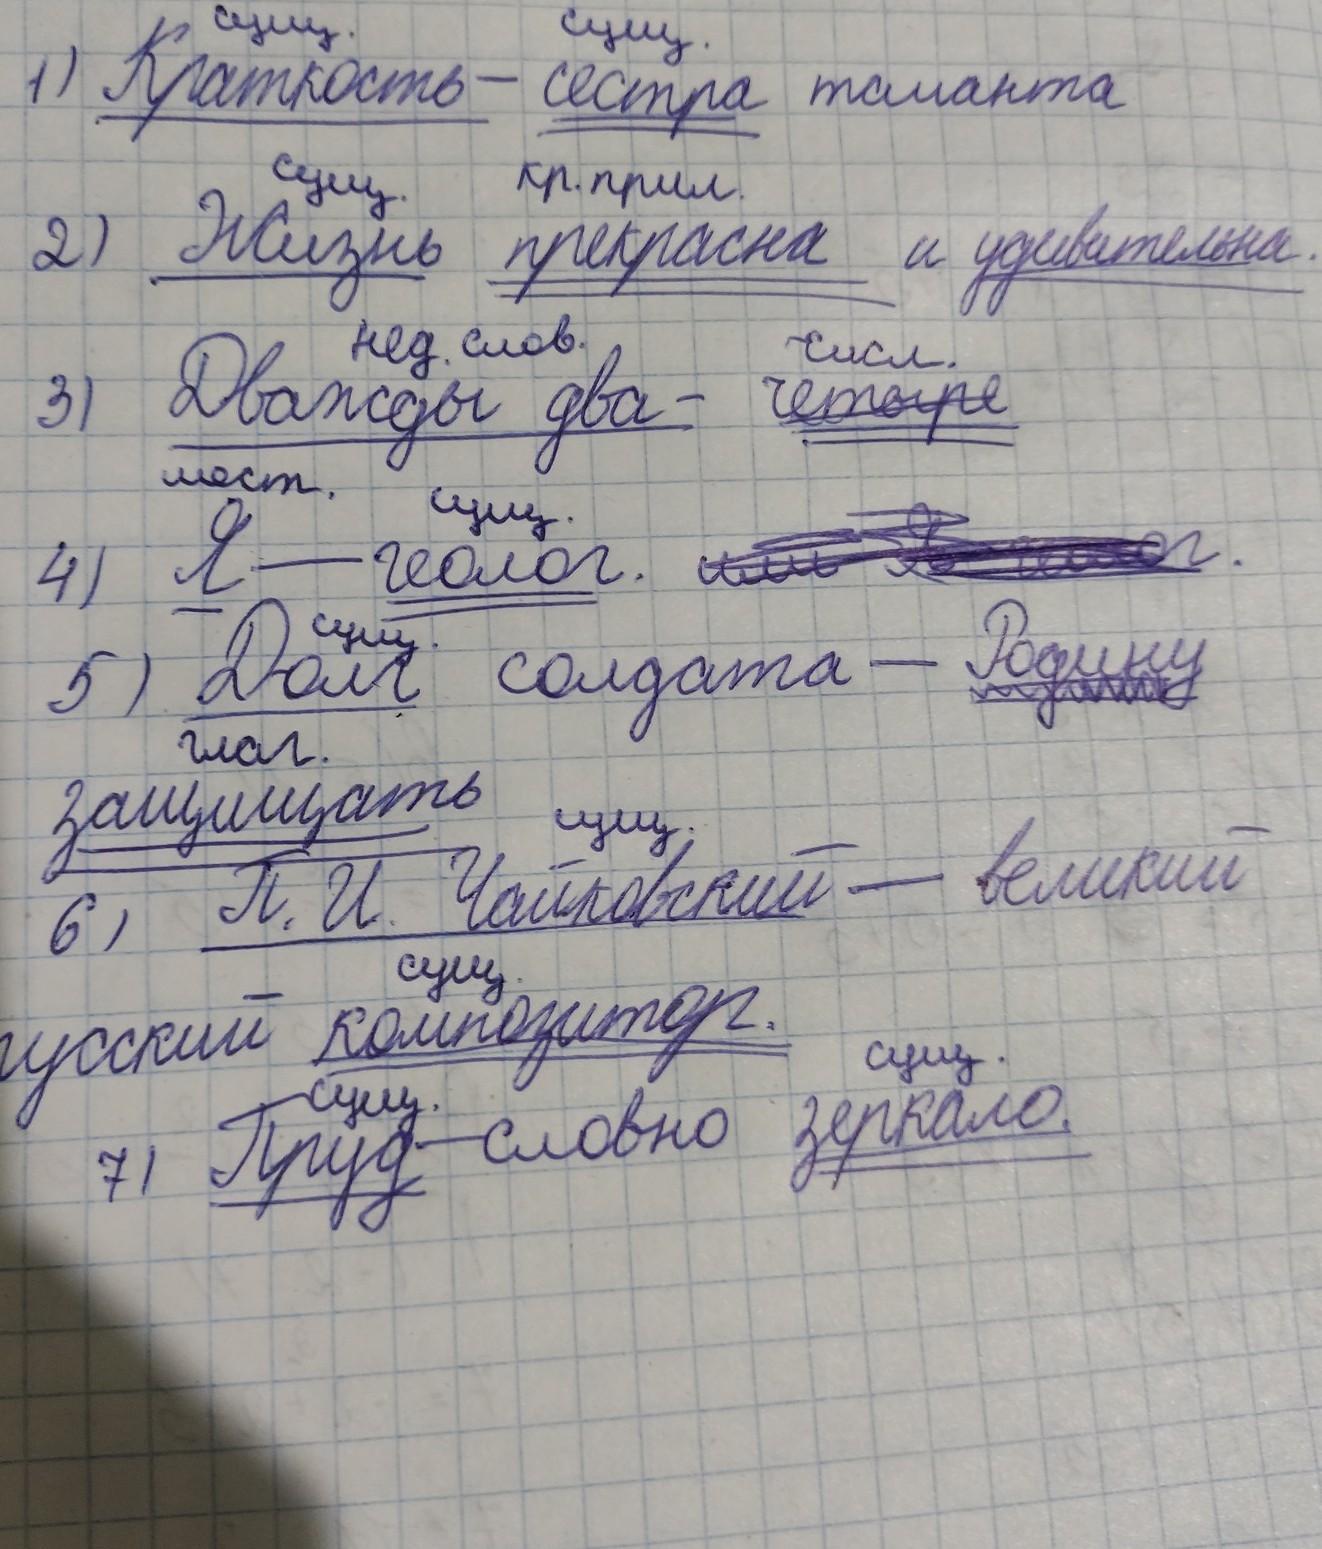 сущ. сущ.
1) Краткость — сестра таланта
сущ. кр. прил.
2) Жизнь прекрасна и удивительна.
нед. слов. числ.
3) Дважды два — четыре
мест. сущ.
4) Я — геолог.
сущ.
5) Долг солдата — Родину
глаг.
защищать
сущ.
6) П. И. Чайковский — великий
сущ.
русский композитор.
сущ. сущ.
7) Пруд — словно зеркало.